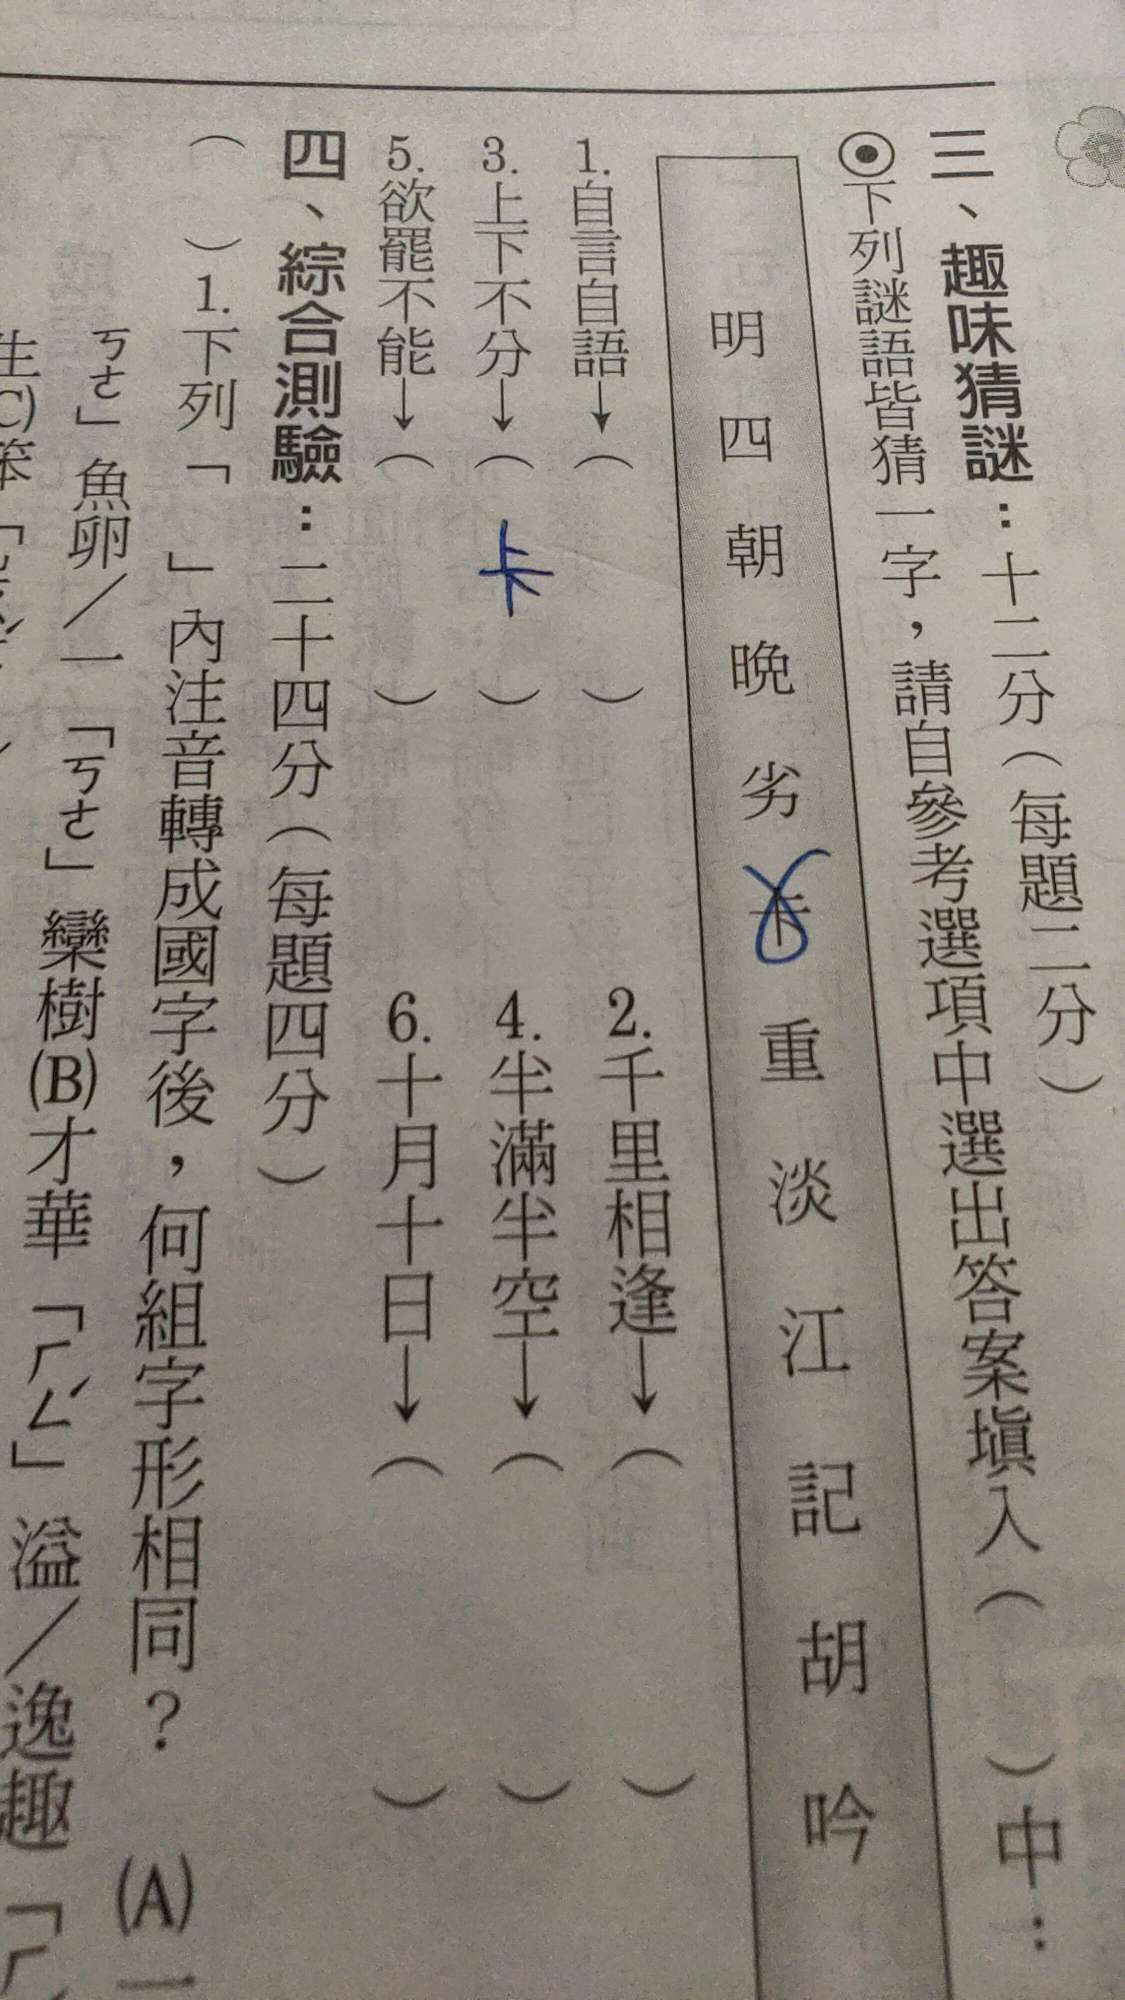 三、趣味猜謎：十二分（每題二分）
⊙下列謎語皆猜一字，請自參考選項中選出答案填入（　）中：
明 四 朝 晚 劣 卡 重 淡 江 記 胡 吟
1.自言自語→（　） 2.千里相逢→（　）
3.上下不分→（卡） 4.半滿半空→（　）
5.欲罷不能→（　） 6.十月十日→（　）
四、綜合測驗：二十四分（每題四分）
（　）1.下列「　」內注音轉成國字後，何組字形相同？(A)一
ㄎㄜ」魚卵／一「ㄎㄜ」欒樹(B)才華「ㄏㄥˊ」溢／逸趣「ㄏ
生(C)笨「